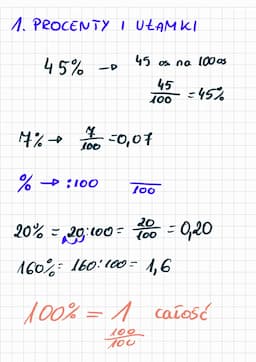 1. PROCENTY I UŁAMKI
45% → 45 os na 100 os
45/100 = 45%
7% → 7/100 = 0,07
% → :100 /100
20% = 20:100 = 20/100 = 0,20
160% = 160:100 = 1,6
100% = 1 całość
100/100